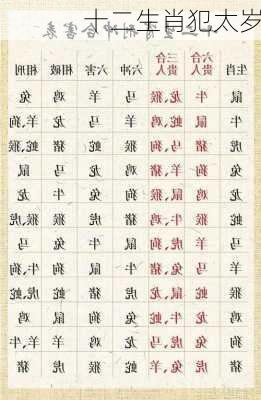 十二生肖犯太岁
生肖 六合贵人 三合贵人 六冲 六害 相破 相刑
鼠 牛 龙、猴 马 羊 鸡 兔
牛 鼠 蛇、鸡 羊 马 龙 羊、狗
虎 猪 马、狗 猴 蛇 猪 蛇、猴
兔 狗 猪、羊 鸡 龙 马 鼠
龙 鸡 鼠、猴 狗 兔 牛 龙
蛇 猴 鸡、牛 猪 虎 猴 虎、猴
马 羊 虎、狗 鼠 牛 兔 马
羊 马 兔、猪 牛 鼠 狗 牛、狗
猴 蛇 鼠、龙 虎 猪 蛇 蛇、虎
鸡 龙 蛇、牛 兔 狗 鼠 鸡
狗 兔 虎、马 龙 鸡 羊 牛、羊
猪 虎 兔、羊 蛇 猴 虎 猪